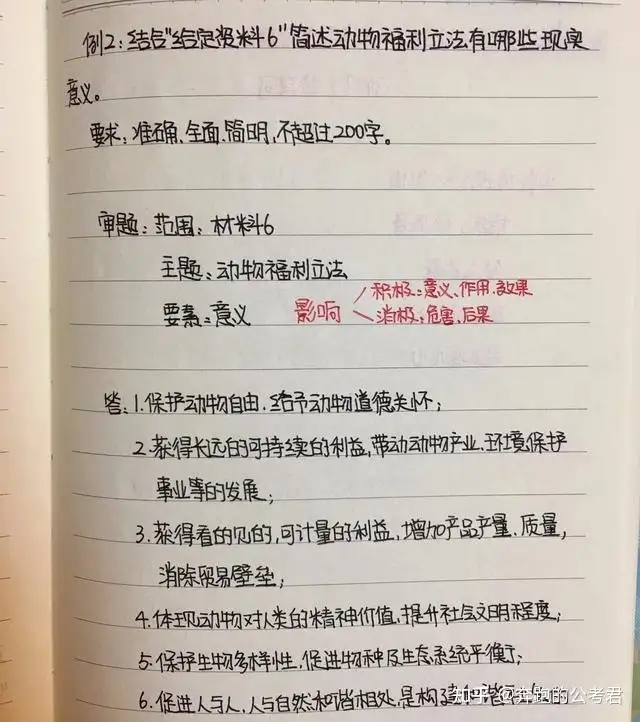 例2：结合“给定资料6”简述动物福利立法有哪些现实
意义。
要求：准确、全面、简明，不超过200字。
审题：范围：材料6
主题：动物福利立法
要素：意义
影响
积极：意义、作用、效果
消极：危害、后果
答：1.保护动物自由，给予动物道德关怀；
2.获得长远的可持续的利益，带动动物产业、环境保护
事业等的发展；
3.获得看的见的，可计量的利益，增加产品产量、质量，
消除贸易壁垒；
4.体现动物对人类的精神价值，提升社会文明程度；
5.保护生物多样性，促进物种及生态系统平衡；
6.促进人与人、人与自然和谐相处，是构
知乎 @奔跑的公考君